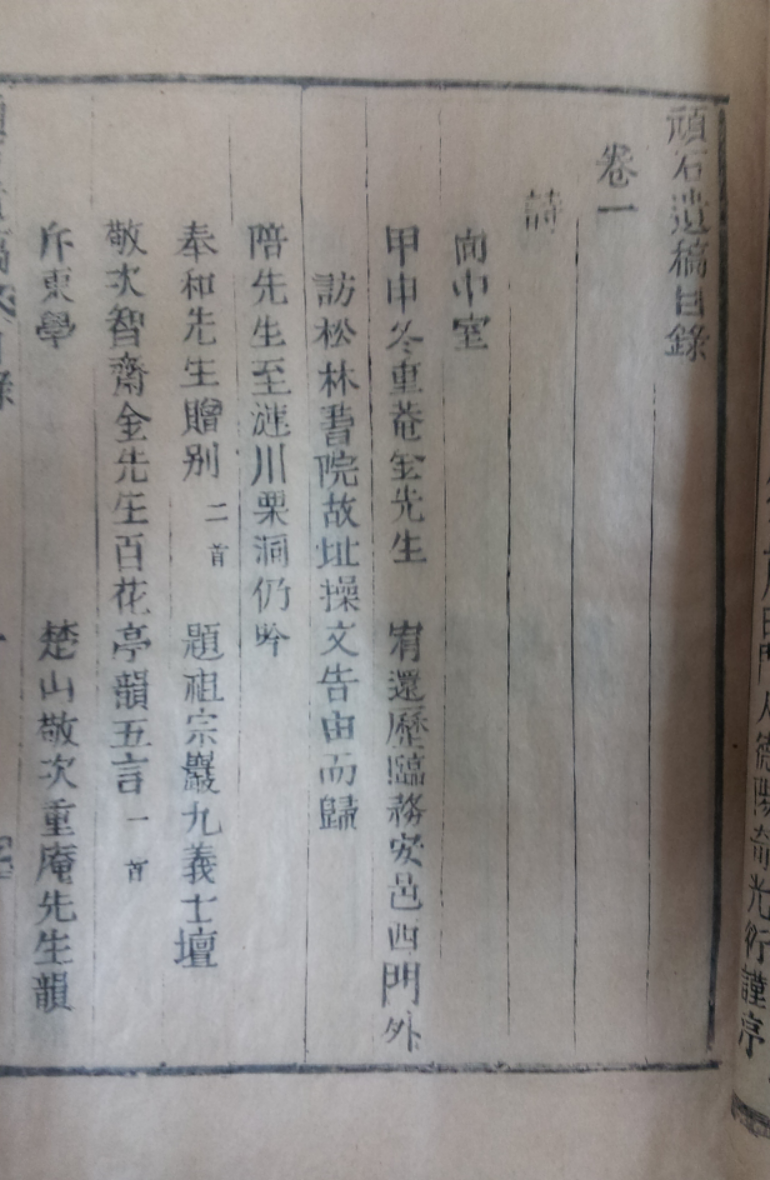 頑石遺稿目錄
卷一
詩
向中室
甲申冬重菴金先生 宥還歷臨務安邑西門外
訪松林書院故址操文告由而歸
陪先生至漣川栗洞仍吟
奉和先生贈别 二首 題祖宗巖九義士壇
敬次智齋金先生百花亭韻五言 一首
斥東學 楚山敬次重庵先生韻